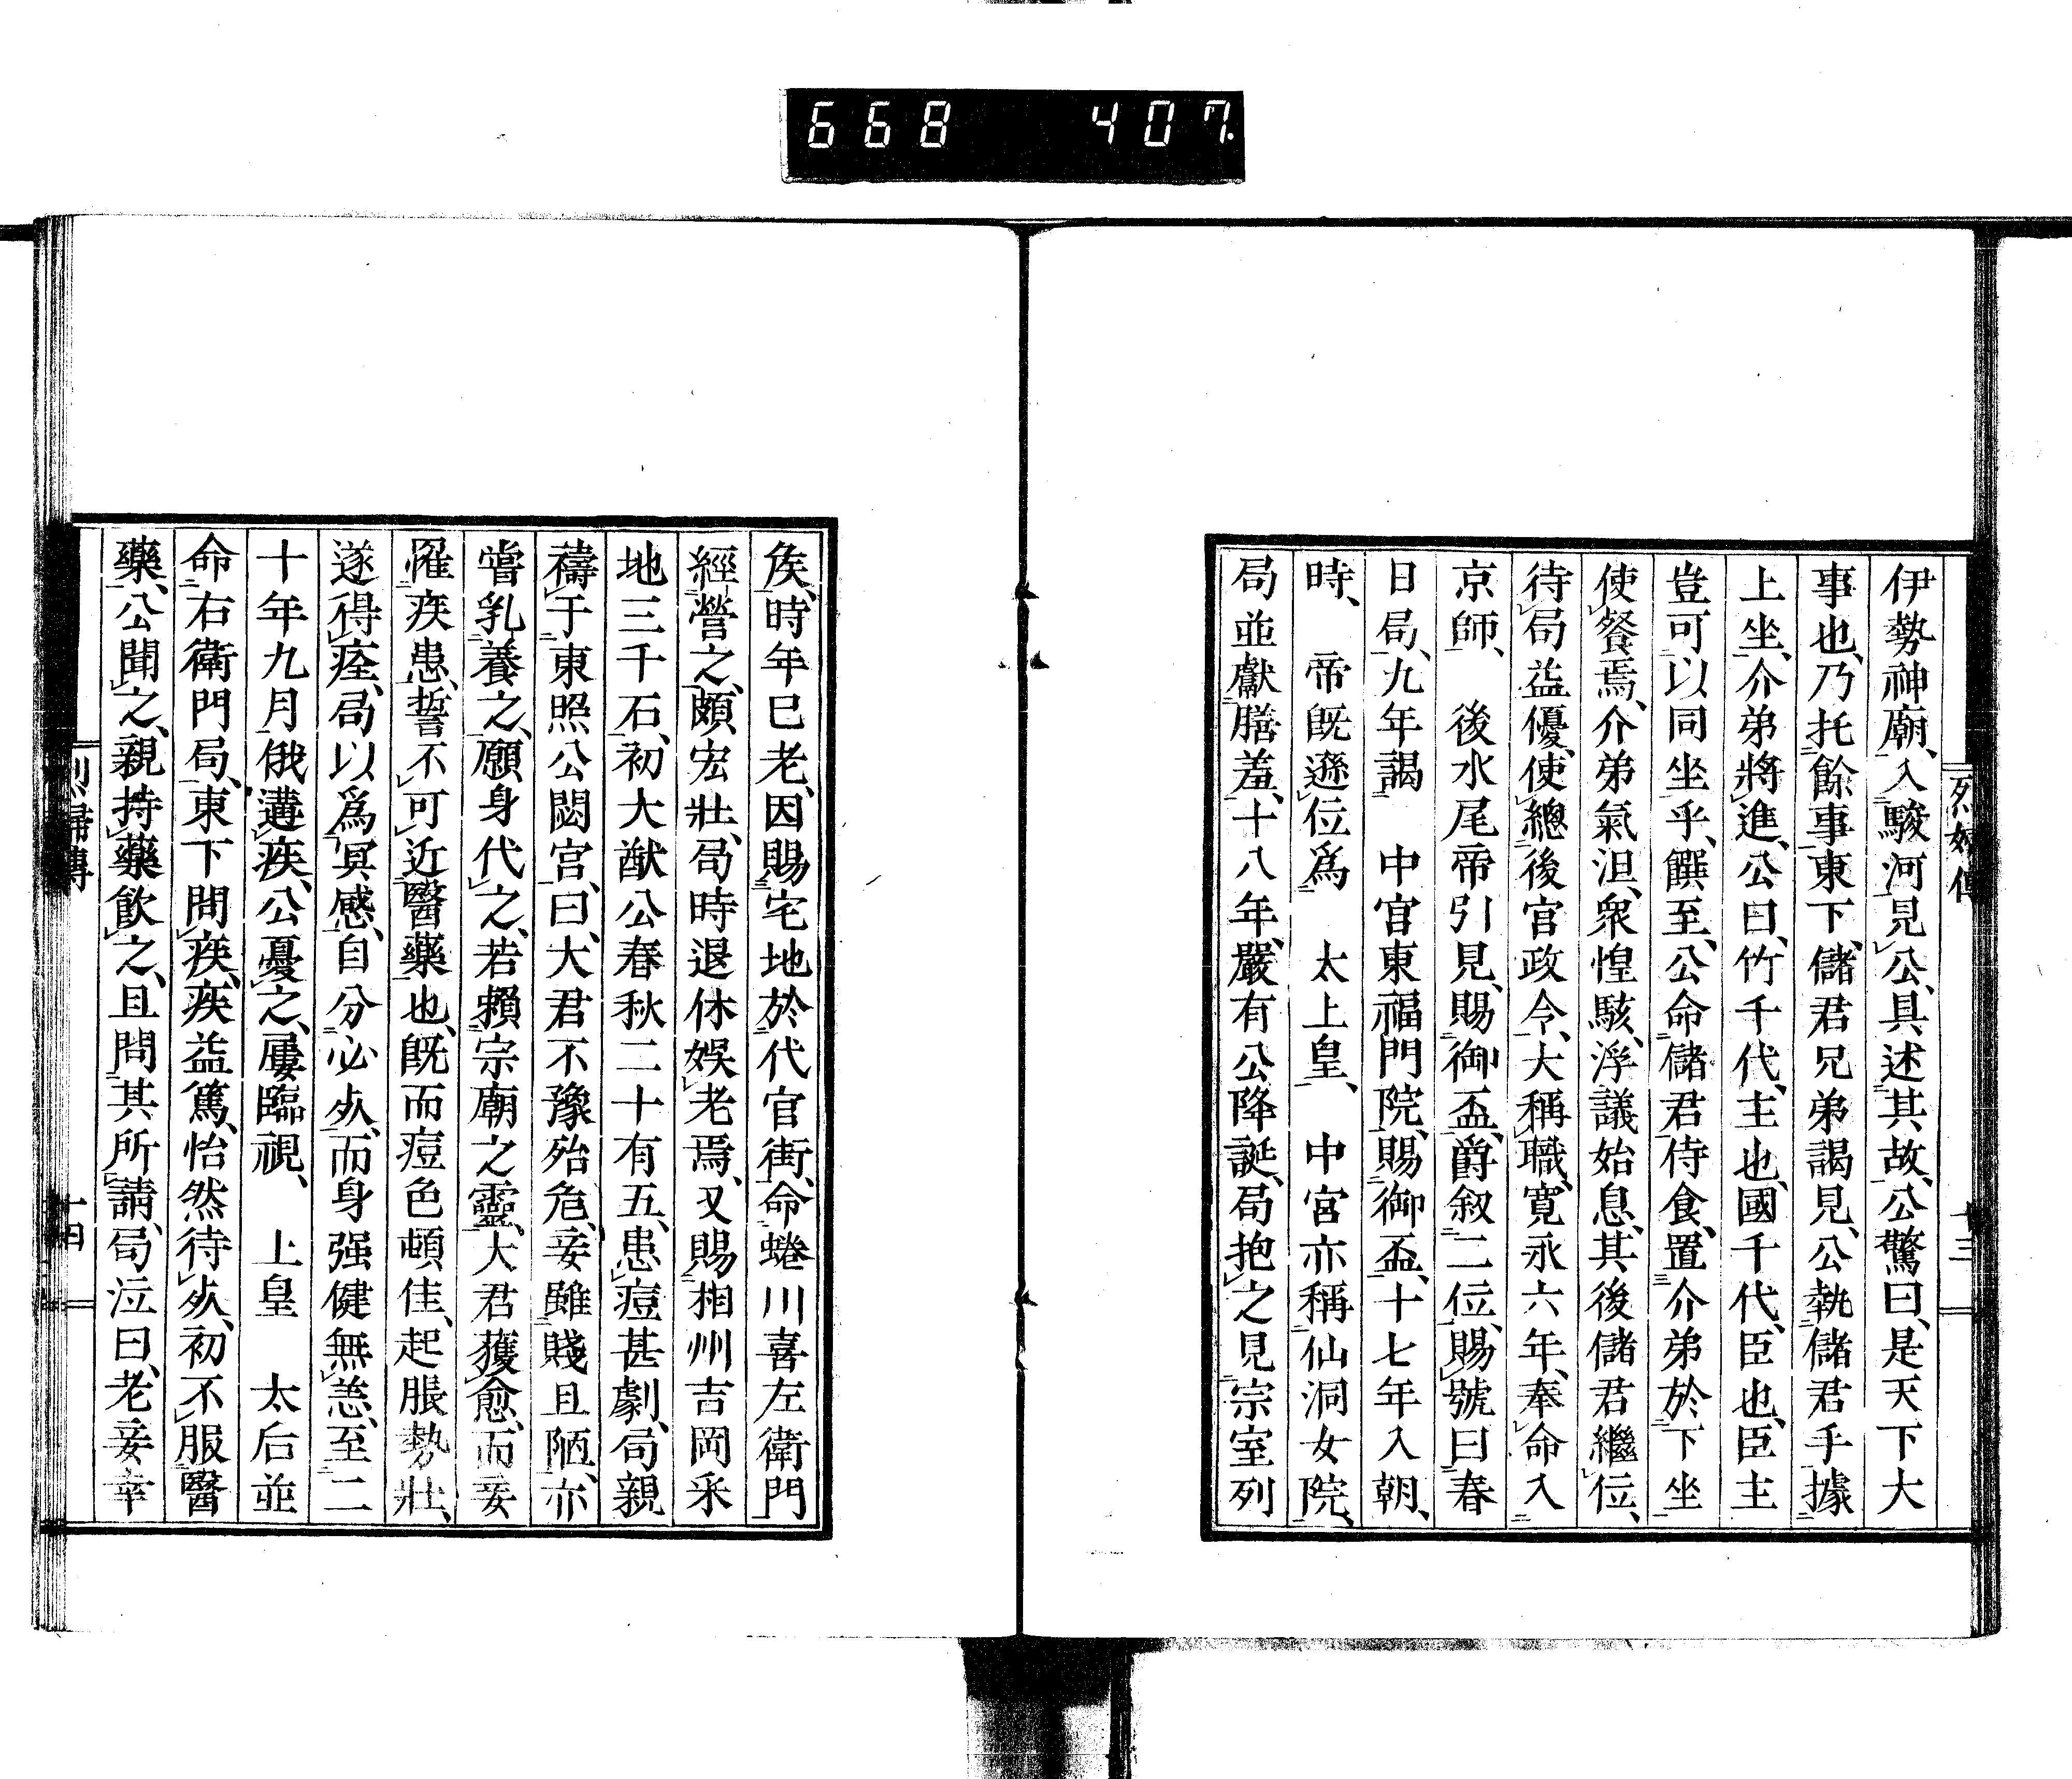 668 407.
烈婦傳 十三
伊勢神廟、入駿河見公、具述其故、公驚曰、是天下大
事也、乃托餘事東下、儲君兄弟謁見、公執儲君手據
上坐、介弟將進、公曰、竹千代、主也、國千代、臣也、臣主
豈可以同坐乎、饌至、公命儲君侍食、置介弟於下坐
使餐焉、介弟氣沮、衆惶駭、浮議始息、其後儲君繼位、
待局益優、使總後宮政令、大稱職、寬永六年、奉命入
京師、 後水尾帝引見、賜御盃、爵叙二位、賜號曰春
日局、九年謁 中宮東福門院、賜御盃、十七年入朝、
時、 帝既遜位爲 太上皇、 中宮亦稱仙洞女院、
局並獻膳羞、十八年、嚴有公降誕、局抱之見宗室列
矦、時年已老、因賜宅地於代官街、命蜷川喜左衛門
經營之、頗宏壯、局時退休娛老焉、又賜相州吉岡采
地三千石、初大猷公春秋二十有五、患痘甚劇、局親
禱于東照公閟宮、曰、大君不豫殆危、妾雖賤且陋、亦
嘗乳養之、願身代之、若賴宗廟之靈、大君獲愈、而妾
罹疾患、誓不可近醫藥也、既而痘色頓佳、起脹勢壯、
遂得痊、局以爲冥感、自分必死、而身强健無恙、至二
十年九月俄遘疾、公憂之、屢臨視、 上皇 太后並
命右衛門局、東下問疾、疾益篤、怡然待死、初不服醫
藥、公聞之、親持藥飮之、且問其所請、局泣曰、老妾幸
列婦傳 十四